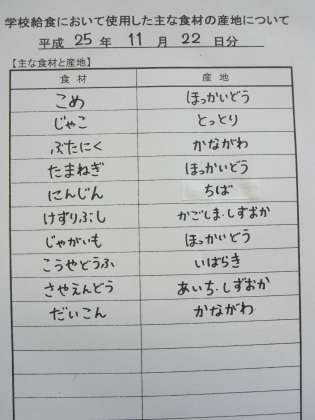 学校給食において使用した主な食材の産地について
平成 25 年 11 月 22 日分
【主な食材と産地】
食材 産地
こめ ほっかいどう
じゃこ とっとり
ぶたにく かながわ
たまねぎ ほっかいどう
にんじん ちば
けずりぶし かごしま・しずおか
じゃがいも ほっかいどう
こうやどうふ いばらき
さやえんどう あいち・しずおか
だいこん かながわ